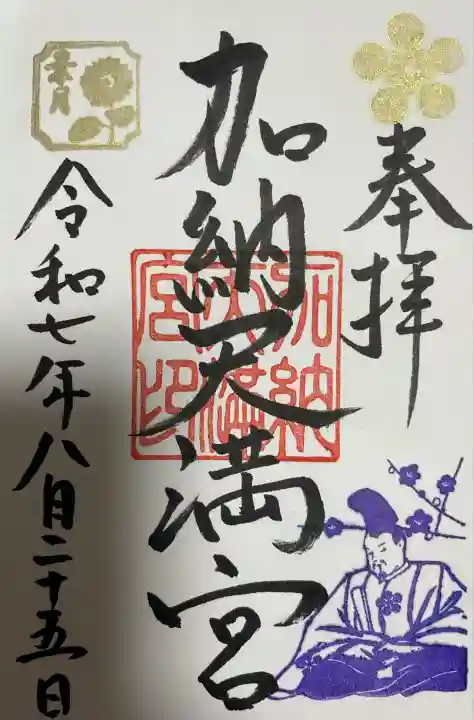 奉拝
加納天満宮
加納天満宮印
葉月
令和七年八月二十五日